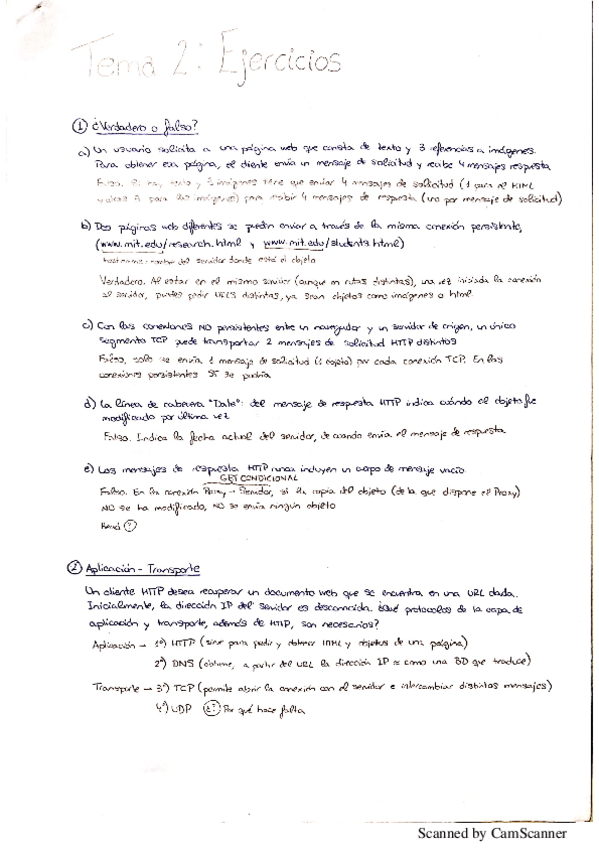 Tema 2: Ejercicios
① ¿Verdadero o falso?
a) Un usuario solicita a una página web que consta de texto y 3 referencias a imágenes.
Para obtener esa página, el cliente envía un mensaje de solicitud y recibe 4 mensajes respuesta
Falso. Si hay texto y 3 imágenes tiene que enviar 4 mensajes de solicitud (1 para el HTML
3 para las imágenes) para recibir 4 mensajes de respuesta (uno por mensaje de solicitud)
b) Dos páginas web diferentes se pueden enviar a través de la misma conexión persistente,
(www.mit.edu/research.html y www.mit.edu/students.html)
nombre del servidor donde está el objeto
Verdadero. Al estar en el mismo servidor (aunque en rutas distintas), una vez iniciada la conexión
al servidor, puedes pedir URLs distintas, ya sean objetos como imágenes o html.
c) Con las conexiones NO persistentes entre un navegador y un servidor de origen, un único
segmento TCP puede transportar 2 mensajes de solicitud HTTP distintos
Falso, solo se envía 1 mensaje de solicitud (1 objeto) por cada conexión TCP. En las
conexiones persistentes SÍ se podría
d) La línea de cabecera "Date": del mensaje de respuesta HTTP indica cuándo el objeto fue
modificado por última vez
Falso. Indica la fecha actual del servidor, de cuando envía el mensaje de respuesta
e) Los mensajes de respuesta HTTP nunca incluyen un cuerpo de mensaje vacío
GET CONDICIONAL
Falso. En la conexión Proxy - Servidor, si la copia del objeto (de la que dispone el Proxy)
NO se ha modificado, NO se envía ningún objeto
② Aplicación - Transporte
Un cliente HTTP desea recuperar un documento web que se encuentra en una URL dada.
Inicialmente, la dirección IP del servidor es desconocida. ¿Qué protocolos de la capa de
aplicación y transporte, además de HTTP, son necesarios?
Aplicación → 1º) HTTP (sirve para pedir y obtener HTML y objetos de una página)
2º) DNS (obtiene, a partir del URL la dirección IP ≈ como una BD que traduce)
Transporte → 3º) TCP (permite abrir la conexión con el servidor e intercambiar distintos mensajes)
4º) UDP ¿? Por qué hace falta
Scanned by CamScanner